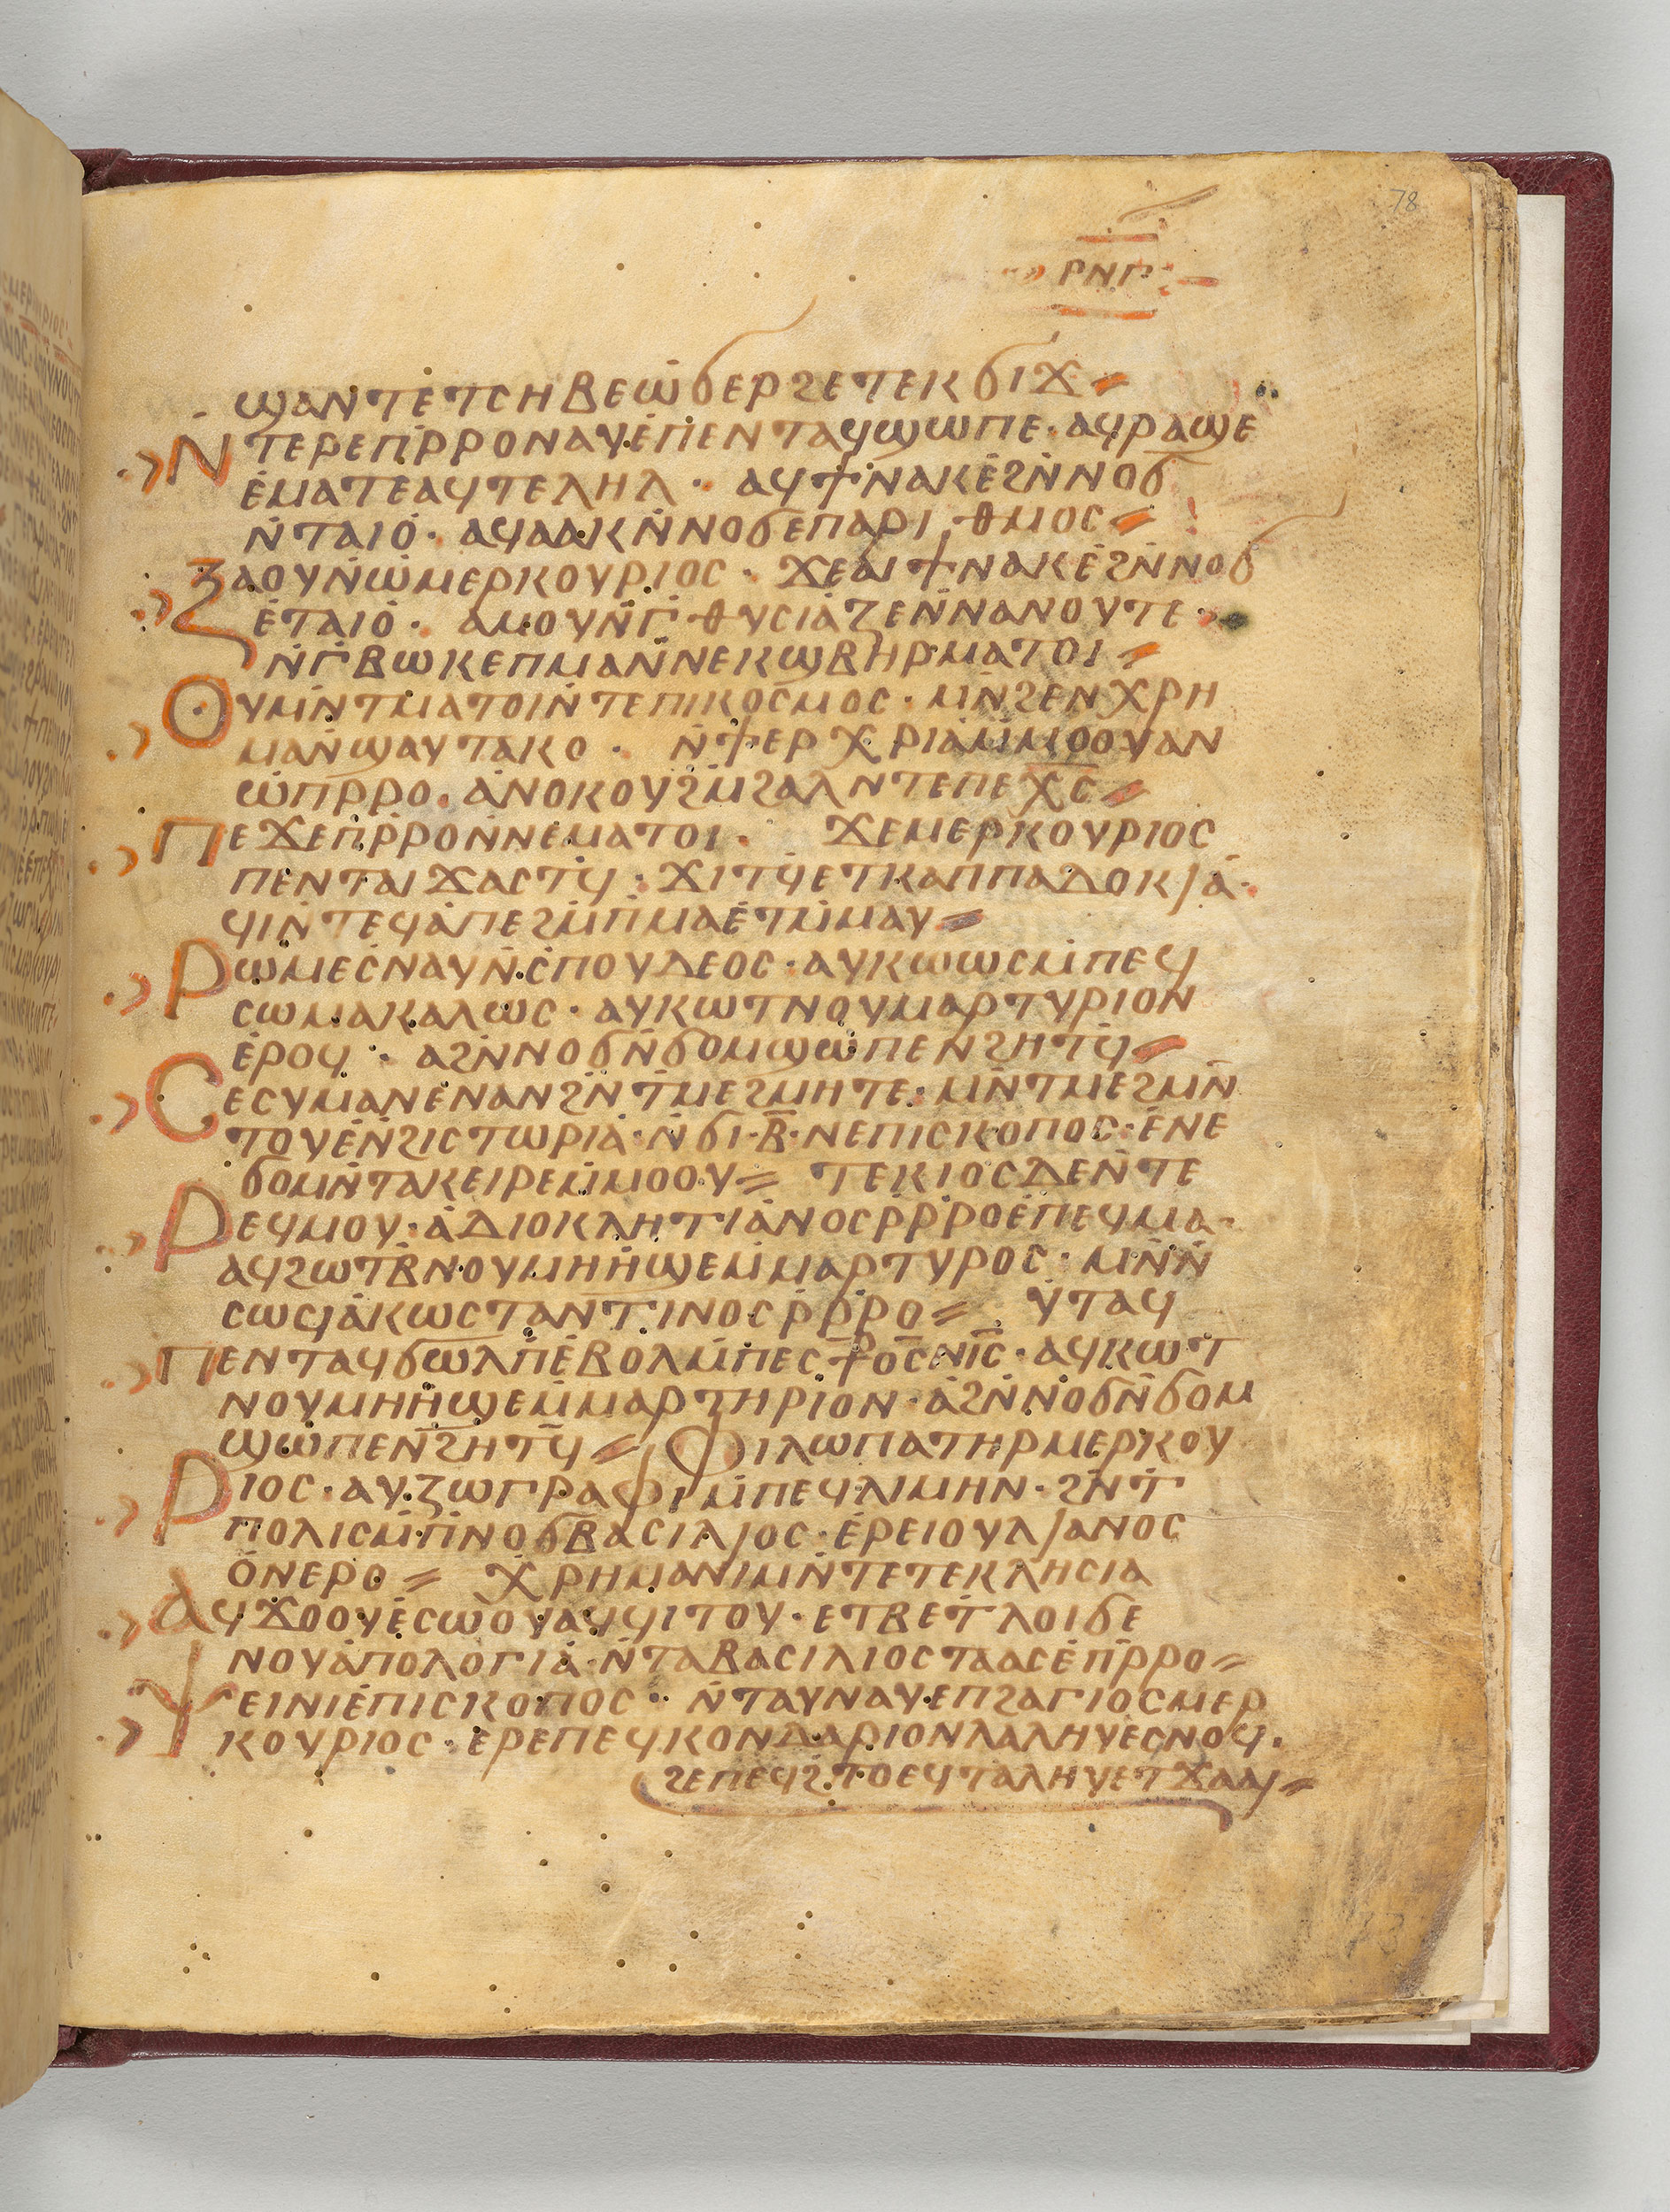 78
ⲣⲛⲅ
ϣⲁⲛⲧⲉⲧⲥⲏⲃⲉⲱϭⲉⲣϩⲉⲧⲉⲕϭⲓϫ
Ⲛⲧⲉⲣⲉⲡⲣ̀ⲣⲟⲛⲁⲩⲉ̀ⲡⲉⲛⲧⲁϥϣⲱⲡⲉ· ⲁϥⲣⲁϣⲉ
ⲉ̀ⲙⲁⲧⲉⲁϥⲧⲉⲗⲏⲗ· ⲁϥϯⲛⲁⲕⲉ̀ϩⲛ̀ⲛⲟϭ
ⲛ̀ⲧⲁⲓⲟ̀· ⲁϥⲁⲁⲕⲛ̀ⲛⲟϭⲉⲡⲁⲣⲓⲑⲙⲟⲥ
Ⲍⲁⲟⲩⲛⲱ̀ⲙⲉⲣⲕⲟⲩⲣⲓⲟⲥ· ϫⲉⲁⲓϯⲛⲁⲕⲉ̀ϩⲛ̀ⲛⲟϭ
ⲉ̀ⲧⲁⲓⲟ̀· ⲁⲙⲟⲩⲛ̀ⲅ̀ⲑⲩⲥⲓⲁ̀ⲍⲉⲛ̀ⲛⲁⲛⲟⲩⲧⲉ
ⲛ̀ⲅ̀ⲃⲱⲕⲉⲡⲙⲁⲛ̀ⲛⲉⲕϣⲃⲏⲣⲙⲁⲧⲟⲓ
Ⲟⲩⲙⲛ̀ⲧⲙⲁⲧⲟⲓⲛ̀ⲧⲉⲡⲓⲕⲟⲥⲙⲟⲥ· ⲙⲛ̀ϩⲉⲛⲭⲣⲏ
ⲙⲁⲛ̀ϣⲁⲩⲧⲁⲕⲟ· ⲛ̀ϯⲉⲣⲭⲣⲓⲁ̀ⲙ̀ⲙⲟⲟⲩⲁⲛ
ⲱ̀ⲡⲣⲣⲟ· ⲁ̀ⲛⲟⲕⲟⲩϩⲙ̀ϩⲁⲗⲛⲧⲉⲡⲉⲭ̅ⲥ̅
Ⲡⲉϫⲉⲡⲣ̀ⲣⲟⲛ̀ⲛⲉⲙⲁⲧⲟⲓ· ϫⲉⲙⲉⲣⲕⲟⲩⲣⲓⲟⲥ
ⲡⲉⲛⲧⲁⲓϫⲁⲥⲧϥ̀· ϫⲓⲧϥ̀ⲉⲧⲕⲁⲡⲡⲁⲇⲟⲕⲓⲁ̀·
ϥⲓⲛ̀ⲧⲉϥⲁ̀ⲡⲉϩⲙ̀ⲡ̀ⲙⲁⲉ̀ⲧⲙ̀ⲙⲁⲩ
Ⲣⲱ̀ⲙⲉⲥ̀ⲛⲁⲩⲛ̀ⲥ̀ⲡⲟⲩⲇⲉⲟⲥ· ⲁⲩⲕⲱⲱⲥⲙ̀ⲡⲉϥ
ⲥⲱⲙⲁⲕⲁⲗⲱⲥ· ⲁⲩⲕⲱⲧⲛⲟⲩⲙⲁⲣⲧⲩⲣⲓⲟⲛ
ⲉ̀ⲣⲟϥ· ⲁϩⲛ̀ⲛⲟϭⲛ̀ϭⲟⲙϣⲱ̀ⲡⲉⲛϩⲏⲧϥ̀
Ⲥⲉⲥⲩⲙⲁⲛⲉ̀ⲛⲁⲛϩⲛ̀ⲧ̀ⲙⲉϩⲙⲏⲧⲉ· ⲙⲛ̀ⲧⲙⲉϩⲙⲛ̀
ⲧⲟⲩⲉ̀ⲛ̀ϩⲓⲥⲧⲱⲣⲓⲁ̀· ⲛ̀ϭⲓ·ⲃ̅·ⲛⲉⲡⲓⲥⲕⲟⲡⲟⲥ· ⲉ̀ⲛⲉ
ϭⲟⲙⲛ̀ⲧⲁⲕⲉⲓⲣⲉⲙ̀ⲙⲟⲟⲩ⸗ ⲧⲉⲕⲓⲟⲥⲇⲉⲛ̀ⲧⲉ
Ⲣⲉϥⲙⲟⲩ· ⲁ̀ⲇⲓⲟⲕⲗⲏⲧⲓⲁ̀ⲛⲟⲥⲣ̀ⲣ̀ⲣⲟⲉ̀ⲡⲉϥⲙⲁ·
ⲁϥϩⲱⲧⲃ̀ⲛⲟⲩⲙⲏⲏ̀ϣⲉⲙ̀ⲙⲁⲣⲧⲩⲣⲟⲥ· ⲙⲛ̀ⲛ̀
ⲥⲱϥⲁ̀ⲕⲱⲥⲧⲁⲛⲧⲓⲛⲟⲥⲣ̀ⲣ̀ⲣⲟ⸗ ⲩ̀ⲧⲁϥ
Ⲡⲉⲛⲧⲁϥϭⲱⲗⲡ̀ⲉ̀ⲃⲟⲗⲙ̀ⲡⲉⲥⲧⲣⲟⲥⲛⲓ̅ⲥ̅· ⲁϥⲕⲱⲧ
ⲛⲟⲩⲙⲏⲏ̀ϣⲉⲙ̀ⲙⲁⲣⲧⲏⲣⲓⲟⲛ· ⲁ̀ϩⲛ̀ⲛⲟϭⲛ̀ϭⲟⲙ
ϣⲱ̀ⲡⲉⲛ̀ϩⲏⲧϥ̀⸗ Ⲫⲓⲗⲱⲡⲁⲧⲏⲣⲙⲉⲣⲕⲟⲩ
Ⲣⲓⲟⲥ· ⲁⲩⲍⲱⲅⲣⲁⲫⲓⲙ̀ⲡⲉϥⲗⲓⲙⲏⲛ· ϩⲛ̀ⲧ̀
ⲡⲟⲗⲓⲥⲙ̀ⲡ̀ⲛⲟϭⲃⲁⲥⲓⲗⲓⲟⲥ· ⲉ̀ⲣⲉⲓⲟⲩⲗⲓⲁⲛⲟⲥ
ⲟ̀ⲛⲉⲣⲟ⸗ ⲭⲣⲏⲙⲁⲛⲓⲙⲛ̀ⲧⲉⲧⲉⲕⲗⲏⲥⲓⲁ
Ⲁϥϫⲟⲟⲩⲉ̀ⲥⲱⲟⲩⲁϥϥⲓⲧⲟⲩ· ⲉⲧⲃⲉⲧ̀ⲗⲟⲓϭⲉ
ⲛⲟⲩⲁ̀ⲡⲟⲗⲟⲅⲓⲁ̀·ⲛ̀ⲧⲁⲃⲁⲥⲓⲗⲓⲟⲥⲧⲁⲁⲥⲉ̀ⲡ̀ⲣⲣⲟ⸗
Ⲩⲉⲓⲛⲓⲉ̀ⲡⲓⲥⲕⲟⲡⲟⲥ· ⲛ̀ⲧⲁⲩⲛⲁⲩⲉⲡϩⲁⲅⲓⲟⲥⲙⲉⲣ
ⲕⲟⲩⲣⲓⲟⲥ· ⲉⲣⲉⲡⲉϥⲕⲟⲛⲇⲁⲣⲓⲟⲛⲗⲁⲗⲏⲩⲉ̀ⲥⲛⲟϥ·
ϩⲉⲡⲉϥϩⲧⲟⲉϥⲧⲁⲗⲏⲩⲉⲧϫⲁϥ⸗